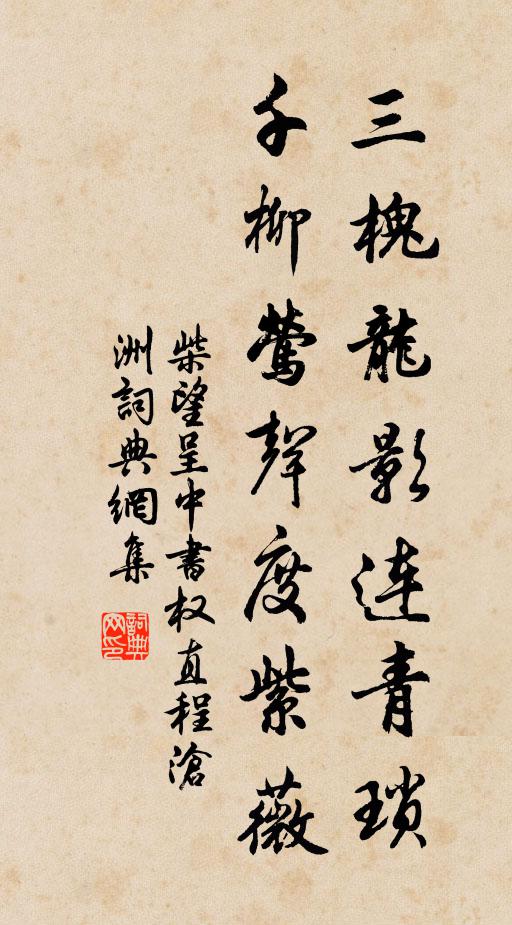 三槐龍影連青瑣
千柳鶯聲度紫薇
柴望呈中書权直程滄
洲詞典網集
詞典
网印